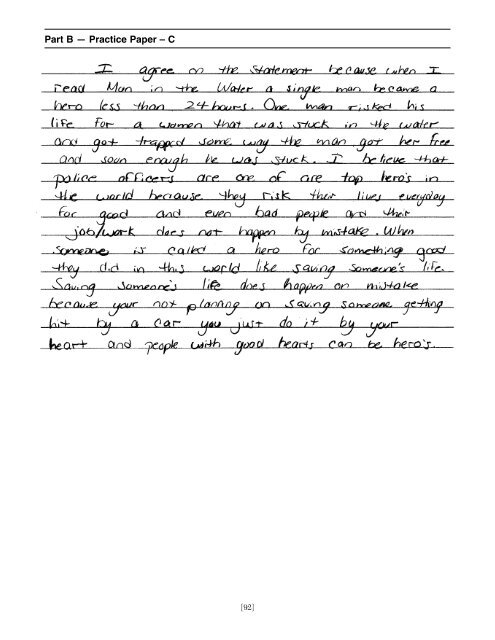 Part B — Practice Paper – C
I agree on the statement because when I
read Man in the Water a single man became a
hero less than 24 hours. One man risked his
life for a women that was stuck in the water
and got trapped some way the man got her free
and soon enough he was stuck. I believe that
police officers are one of are top hero's in
the world because they risk their lives everyday
for good and even bad people and their
job/work does not happen by mistake. When
someone is called a hero for something good
they did in this world like saving someone's life.
Saving someone's life does happen on mistake
because your not planning on saving someone getting
hit by a car you just do it by your
heart and people with good hearts can be hero's.
[92]